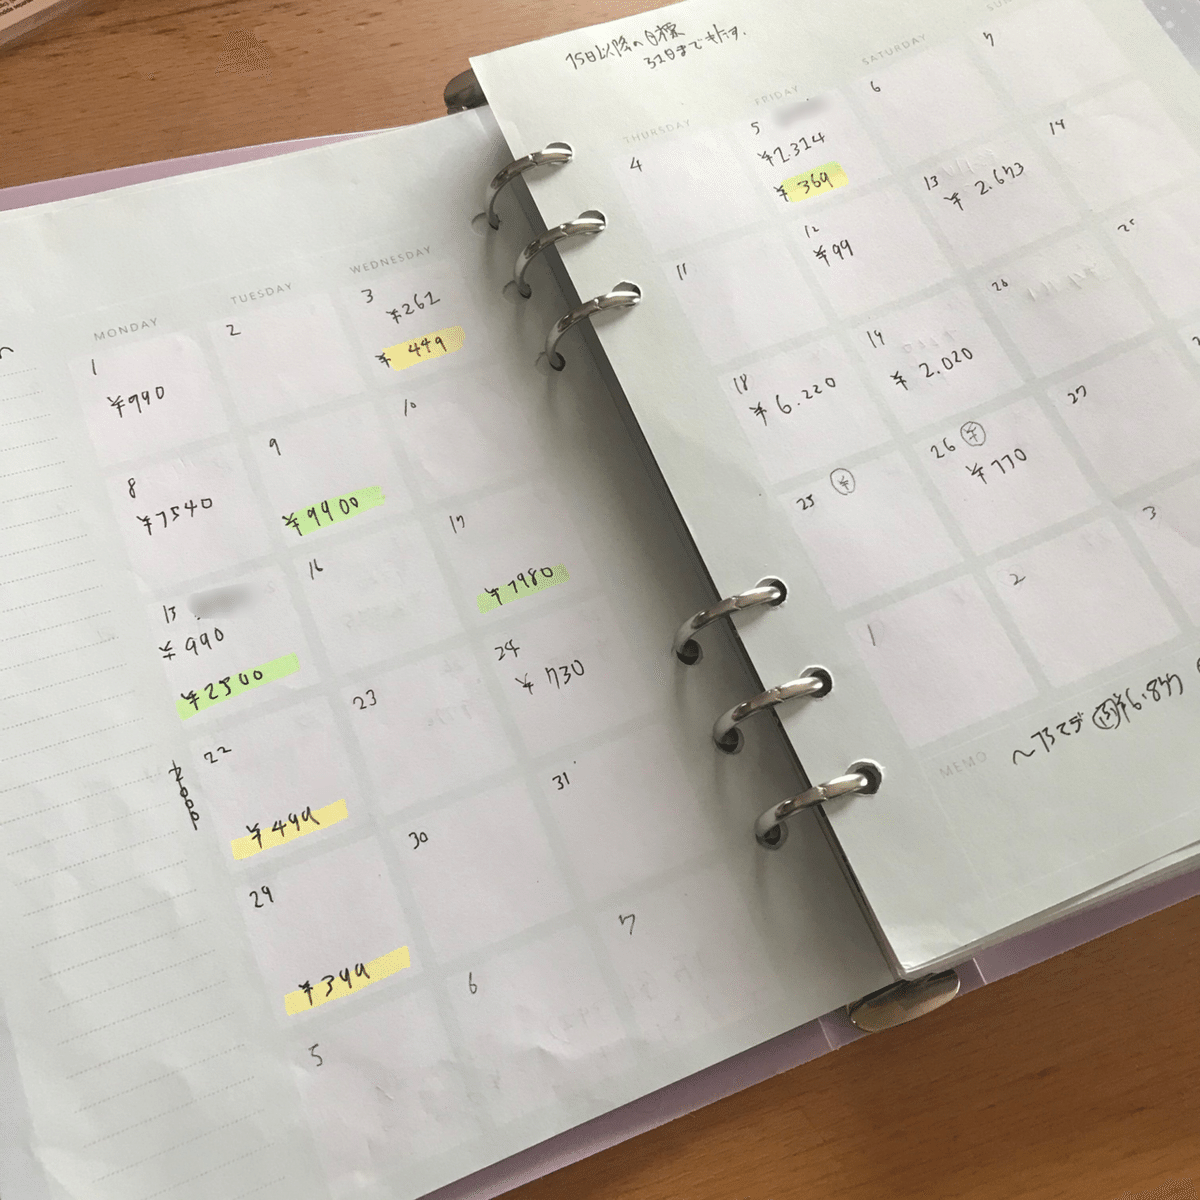 15日以降の目標
31日までもたす.
MONDAY
TUESDAY
WEDNESDAY
THURSDAY
FRIDAY
SATURDAY
SUN
1
¥990
2
3
¥262
¥449
4
5
¥2.314
¥369
6
7
8
¥7540
9
¥9900
10
11
12
¥99
13
¥2.673
14
¥990
¥2500
16
17
¥1980
18
¥6.220
19
¥2.020
20
22
¥499
23
24
¥730
25 ¥
26 ¥
¥770
27
29
¥399
30
31
1
2
3
5
6
7
MEMO